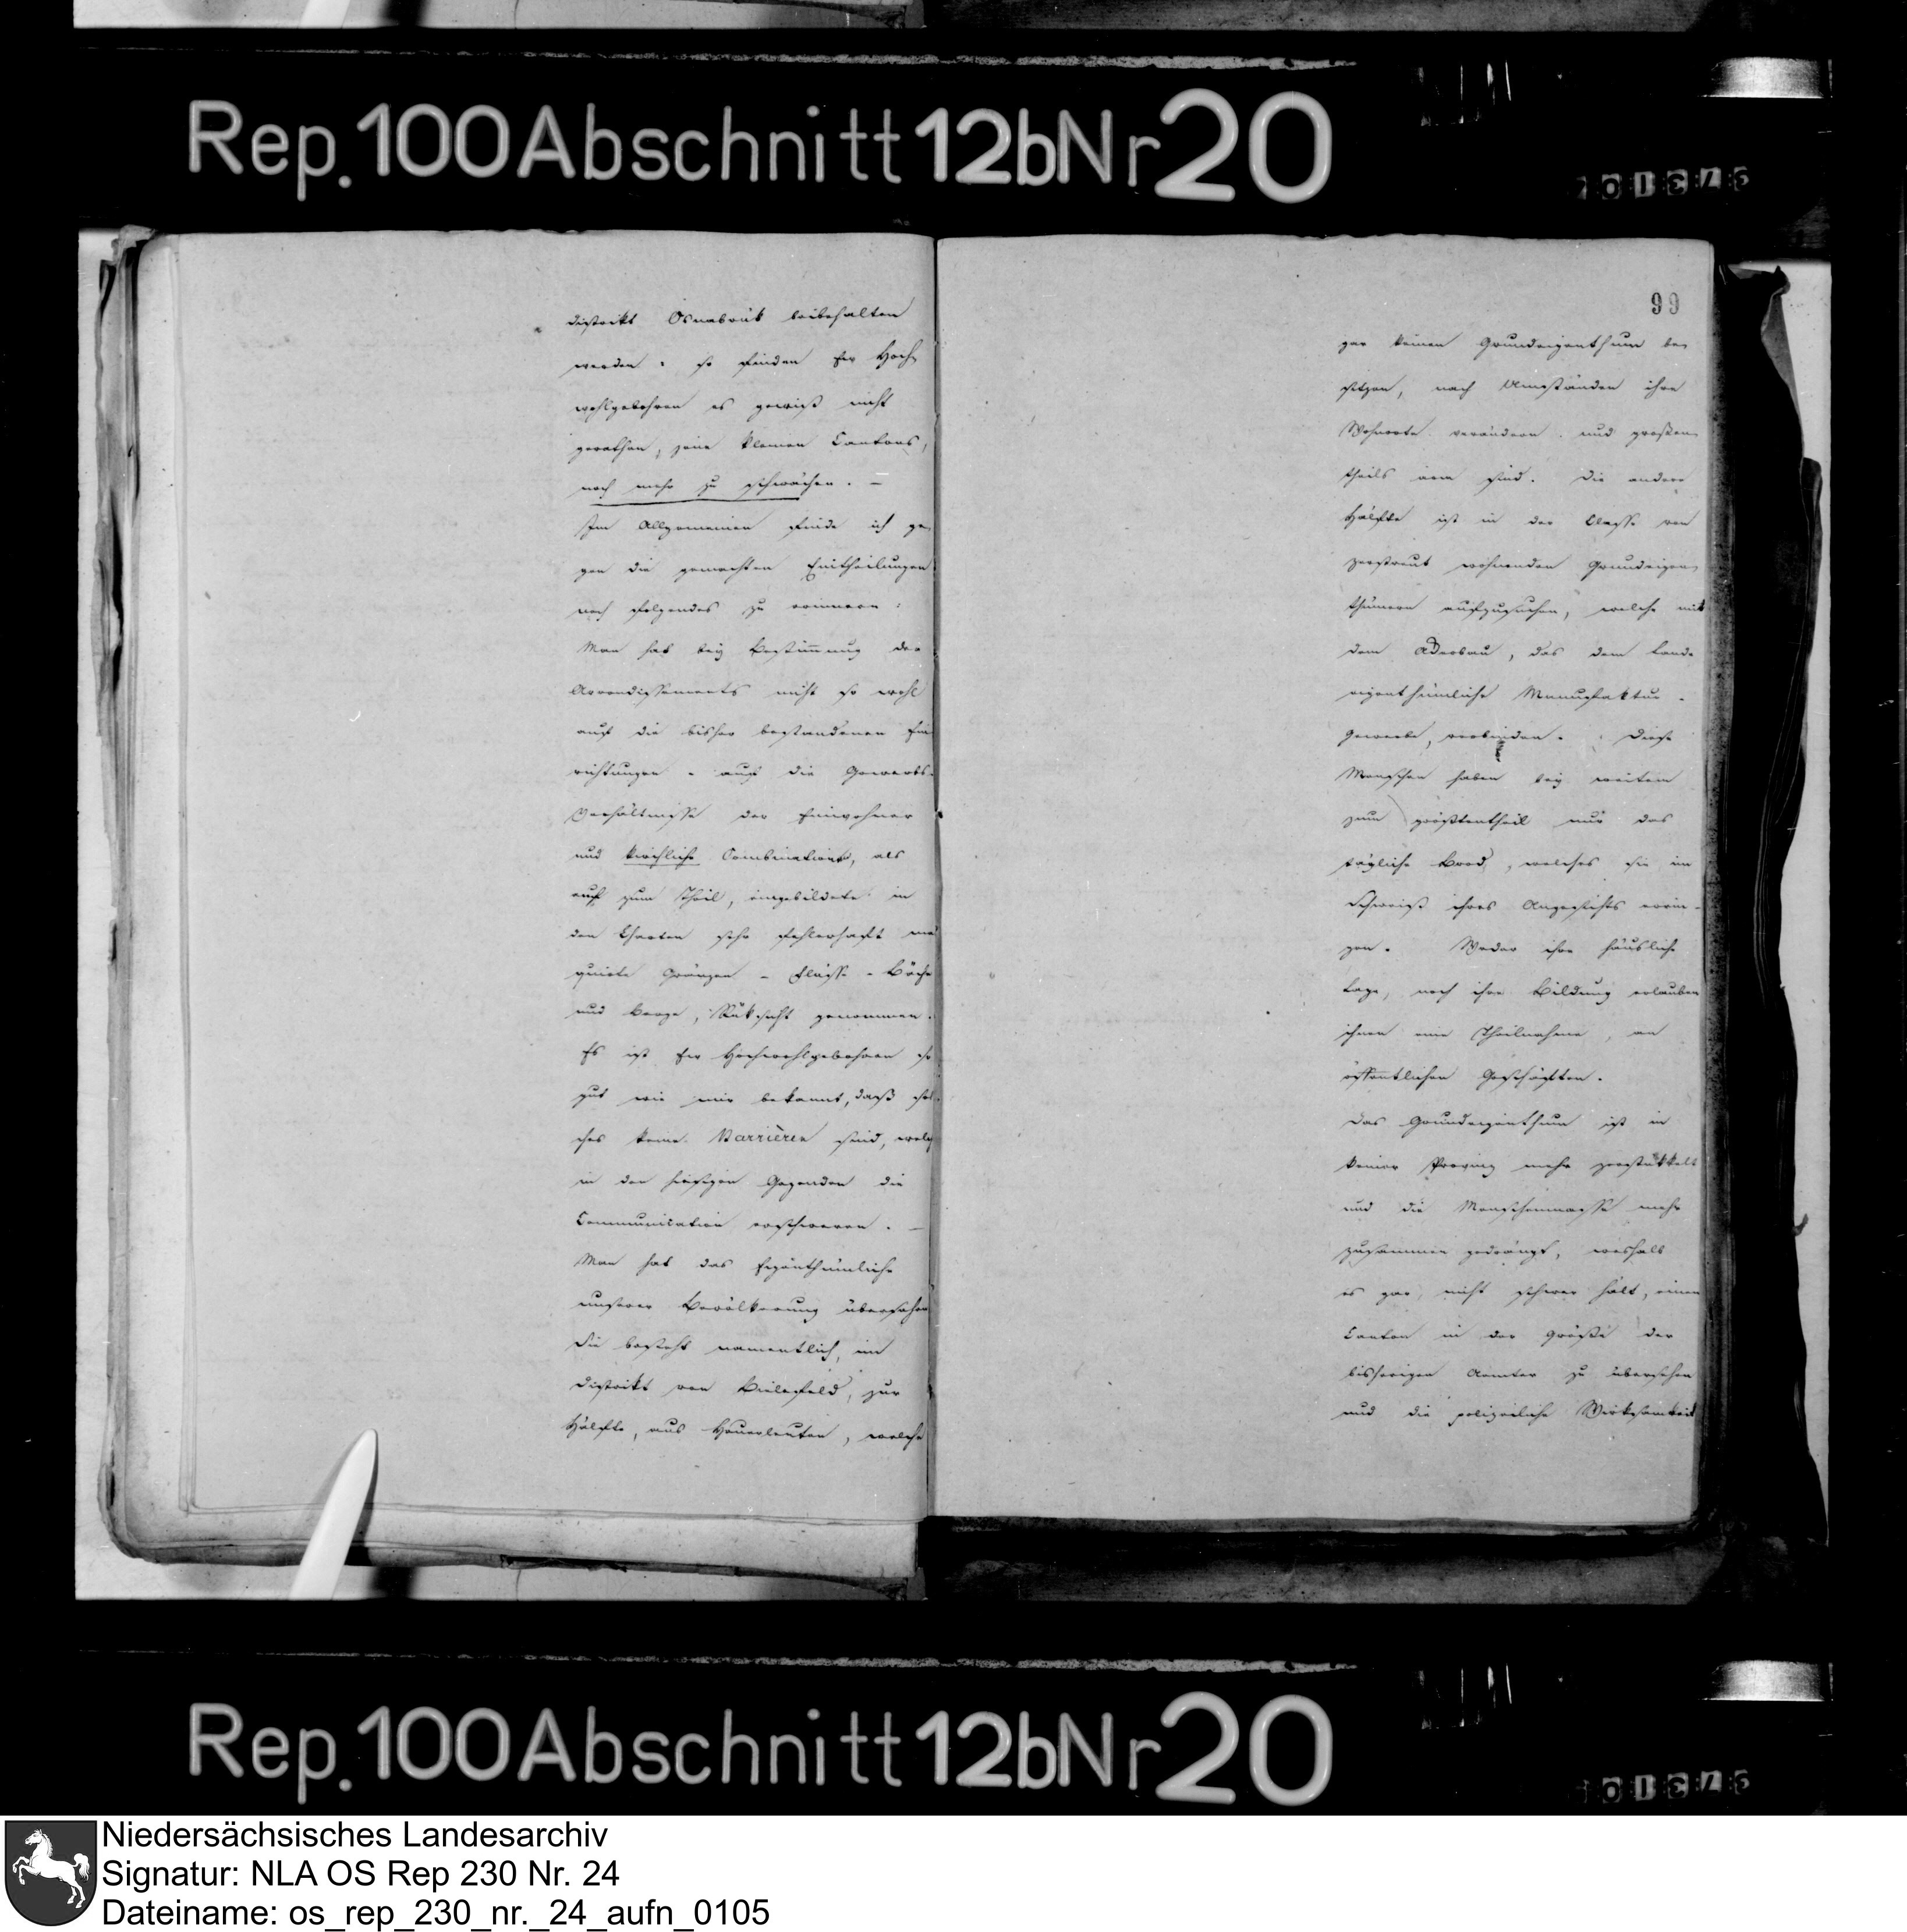 Rep. 100 Abschnitt 12b Nr 20
distrikt Osnabrük beibehalten
werden: so finden Ew Hoch
wohlgebohren es gewiß nicht
gerathen, jene kleinen Cantons,
noch mehr zu schwächen. –
Im Allgemeinen finde ich ge
gen die gemachten Eintheilungen
noch folgendes zu erinnern:
Man hat bey Bestim̅ung der
Arrondissements nicht so wohl
auf die bisher bestandenen Ein
richtungen - auf die Gewerbs-
Verhältnisse der Einwohner
und kirchliche Combinations, als
auf zum Theil, eingebildete in
den Charten sehr fehlerhaft
Gränzen - Flüsse - Bäche
und Berge, Rüksicht genommen.
Es ist Ew Hochwohlgebohren so
gut wie mir bekannt, daß sol
ches keine Barrièren sind, welche
in den hiesigen Gegenden die
Communication erschweren. –
Man hat das Eigenthümliche
unserer Bevölkerung übersehen
Sie besteht namentlich, im
Distrikt von Bielefeld, zur
Hälfte, aus Heuerleuten, welche
99
gar keinen Grundeigenthum be
sitzen, nach Umständen ihre
Wohnorte verändern. und großen
theils arm sind. Die andere
Hälfte ist in der Classe von
zerstreut wohnenden Grundeigen
thümern aufzusuchen, welche mit
dem Ackerbau, das dem Lande
eigenthümliche Manufaktur-
Gewerbe, verbinden. Diese
Menschen haben bey weitem
zum größtentheil nur das
tägliche Brod, welches sie im
Schweiß ihres Angesichts errin-
gen. Weder ihre häusliche
Lage, noch ihre Bildung erlauben
ihnen eine Theilnahme, an
öffentlichen Geschäften.
Das Grundeigenthum ist in
keiner Provinz mehr zerstükkelt
und die Menschenmasse mehr
zusammen gedrängt, weshalb
es gar nicht schwer hält, einen
Canton in der Größe der
bisherigen Aemter zu übersehen
und die polizeiliche Wirksamkeit
Rep. 100 Abschnitt 12b Nr 20
Niedersächsisches Landesarchiv
Signatur: NLA OS Rep 230 Nr. 24
Dateiname: os_rep_230_nr._24_aufn_0105